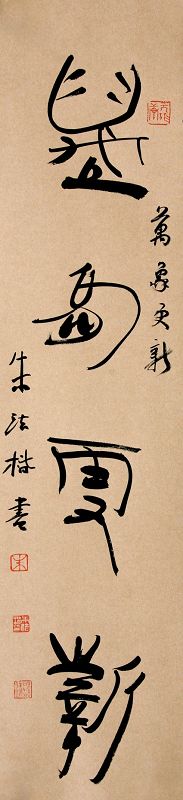 萬象更新
萬象更新
朱法書
朱